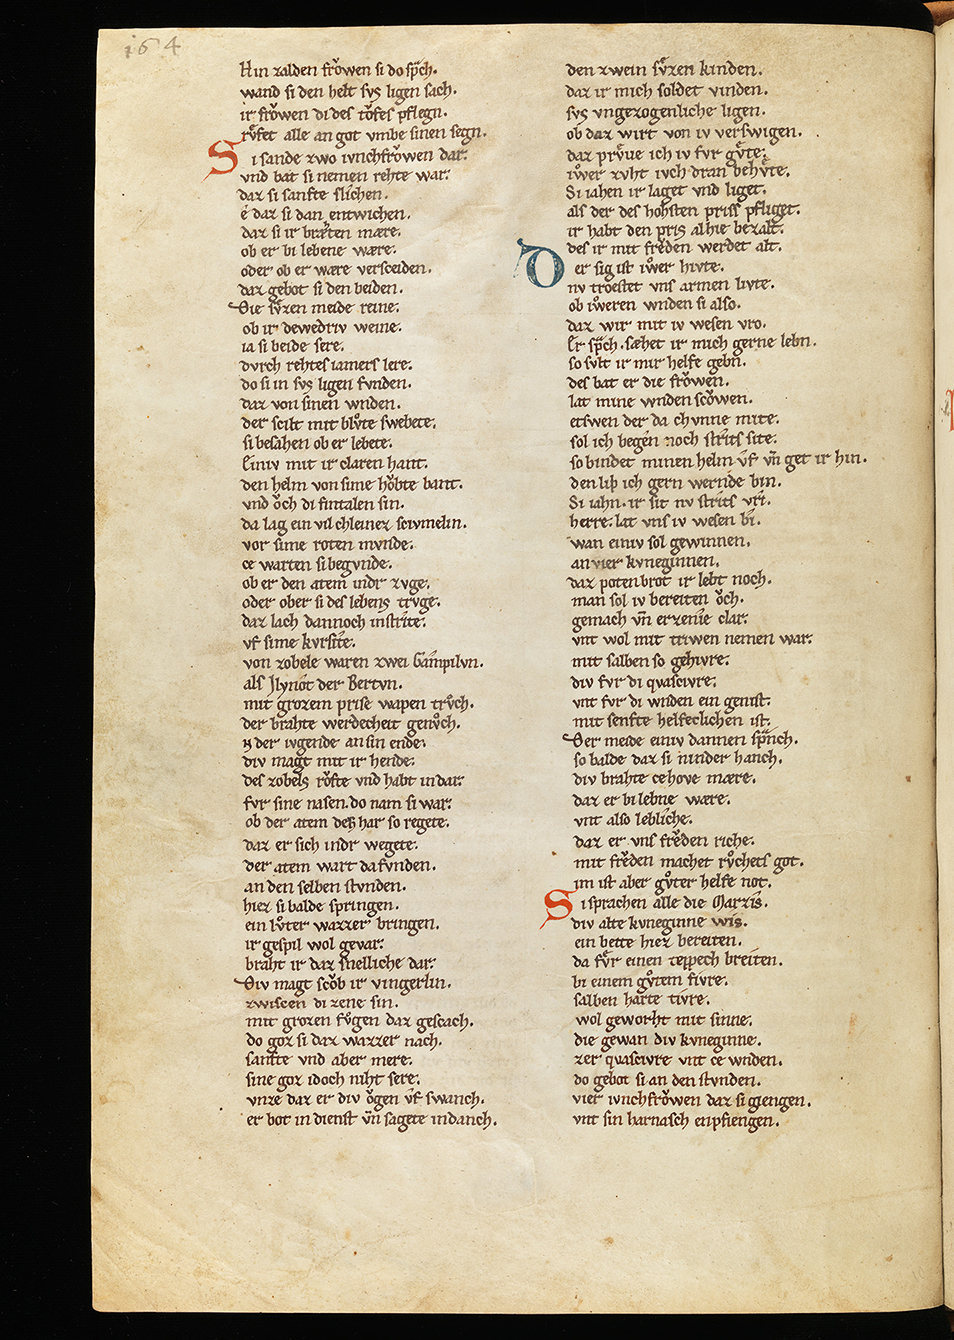 164
Hin zalden frowen si do sp̄ch.
wand si den helt sus ligen sach.
ir frowen di des tofes pflegn.
rufet alle an got umbe sinen segn.
Si sande zwo ivnchfrowen dar.
vnd bat si nemen rehte war.
daz si sanfte slichen.
é daz si dan entwichen.
daz si ir bræhten mære.
ob er bi lebene wære.
oder ob er wære versceiden.
daz gebot si den beiden.
Die svzen meide reine.
ob ir dewedriv weine.
ia si beide sere.
dvrch rehtes iamers lere.
do si in svs ligen fvnden.
daz von sinen wnden.
der scilt mit blvote swebete.
si besahen ob er lebete.
Einiv mit ir claren hant.
den helm von sime hovbte bant.
vnd och di fintalen sin.
da lag ein vil chleinez scivmelin.
vor sime roten mvnde.
ce warten si begvnde.
ob er den atem indr zvge.
oder ober si des lebens trvge.
daz lach dannoch instrite.
vf sime kvrsite.
von zobele waren zwei Gampilvn.
als Jlynot der Bertvn.
mit grozem prise wapen trvoch.
der brahte werdecheit genvoch.
der ivgende an sin ende.
div magt mit ir hende.
des zobels rofte vnd habt in dar.
fvr sine nasen. do nam si war.
ob der atem dez har so regete.
daz er sich indr wegete.
der atem wart da fvnden.
an den selben stvnden.
hiez si balde springen.
ein lvter wazzer bringen.
ir gespil wol gevar.
braht ir daz snelliche dar.
Div magt scob ir vingerlin.
zwiscen di zene sin.
mit grozen fvogen daz gescach.
do goz si daz wazzer nach.
sanfte vnd aber mere.
sine goz idoch niht sere.
vnze daz er div ogen vf swanch.
er bot in dienst vn̄ sagete in danch.
den zwein svzen kinden.
daz ir mich soldet vinden.
svs vngezogenliche ligen.
ob daz wirt von iv verswigen.
daz prvue ich iv fvr gvte.
iwer zvht ivch dran behvte.
Si iahen ir laget vnd liget.
als der des hohsten priss pfliget.
ir habt den pris alhie bezalt.
des ir mit freden werdet alt.
Der sig ist iwer hivte.
nv troestet vns armen livte.
ob iweren wnden si also.
daz wir mit iv wesen vro.
Er sp̄ch. sæhet ir mich gerne lebn.
so svlt ir mir helfe gebn.
des bat er die frowen.
lat mine wnden scowen.
etswen der da chvnne mite.
sol ich begen noch strits site.
so bindet minen helm vf vn̄ get ir hin.
den lip ich gern wernde bin.
Si iahn. ir sit nv strits vri.
herre. lat vns iv wesen bi.
wan einiv sol gewinnen.
an vier kvneginnen.
daz potenbrot ir lebt noch.
man sol iv bereiten och.
gemach vn̄ erzenie clar.
vnt wol mit triwen nemen war.
mit salben so gehivre.
div fvr di qvascivre.
vnt fvr di wnden ein genist.
mit senfte helfeclichen ist.
Der meide einiv dannen sp̄nch.
so balde daz si ninder hanch.
div brahte ce hove mære.
daz er bi lebne wære.
vnt also lebliche.
daz er vns freden riche.
mit freden machet rvochets got.
im ist aber gvoter helfe not.
Si sprachen alle die Marzis.
div alte kvneginne wis.
ein bette hiez bereiten.
da fvr einen teppech breiten.
bi einem gvotem fivre.
salben harte tivre.
wol geworht mit sinne.
die gewan div kvneginne.
zer qvascivre vnt ce wnden.
do gebot si an den stvnden.
vier ivnchfrowen daz si giengen.
vnt sin harnasch enpfiengen.